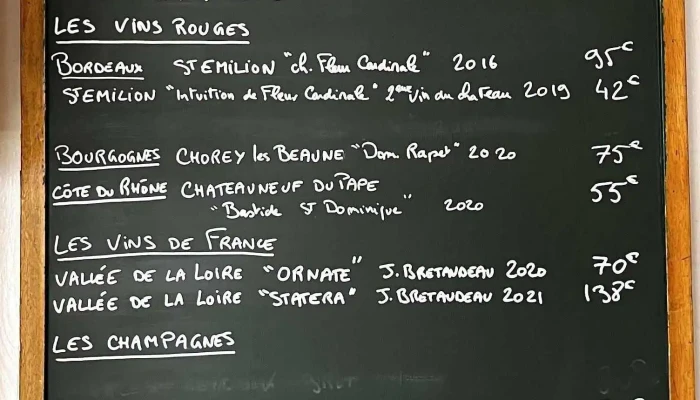 LES VINS ROUGES
BORDEAUX ST EMILION "ch. Fleur Cardinale" 2016 95€
ST EMILION "Intuition de Fleur Cardinale" 2ème vin du chateau 2019 42€
BOURGOGNES CHOREY les BEAUNE "Dom. Rapet" 2020 75€
CÔTE DU RHÔNE CHATEAUNEUF DU PAPE 55€
"Bastide St Dominique" 2020
LES VINS DE FRANCE
VALLÉE DE LA LOIRE "ORNATE" J. BRETAUDEAU 2020 70€
VALLÉE DE LA LOIRE "STATERA" J. BRETAUDEAU 2021 138€
LES CHAMPAGNES